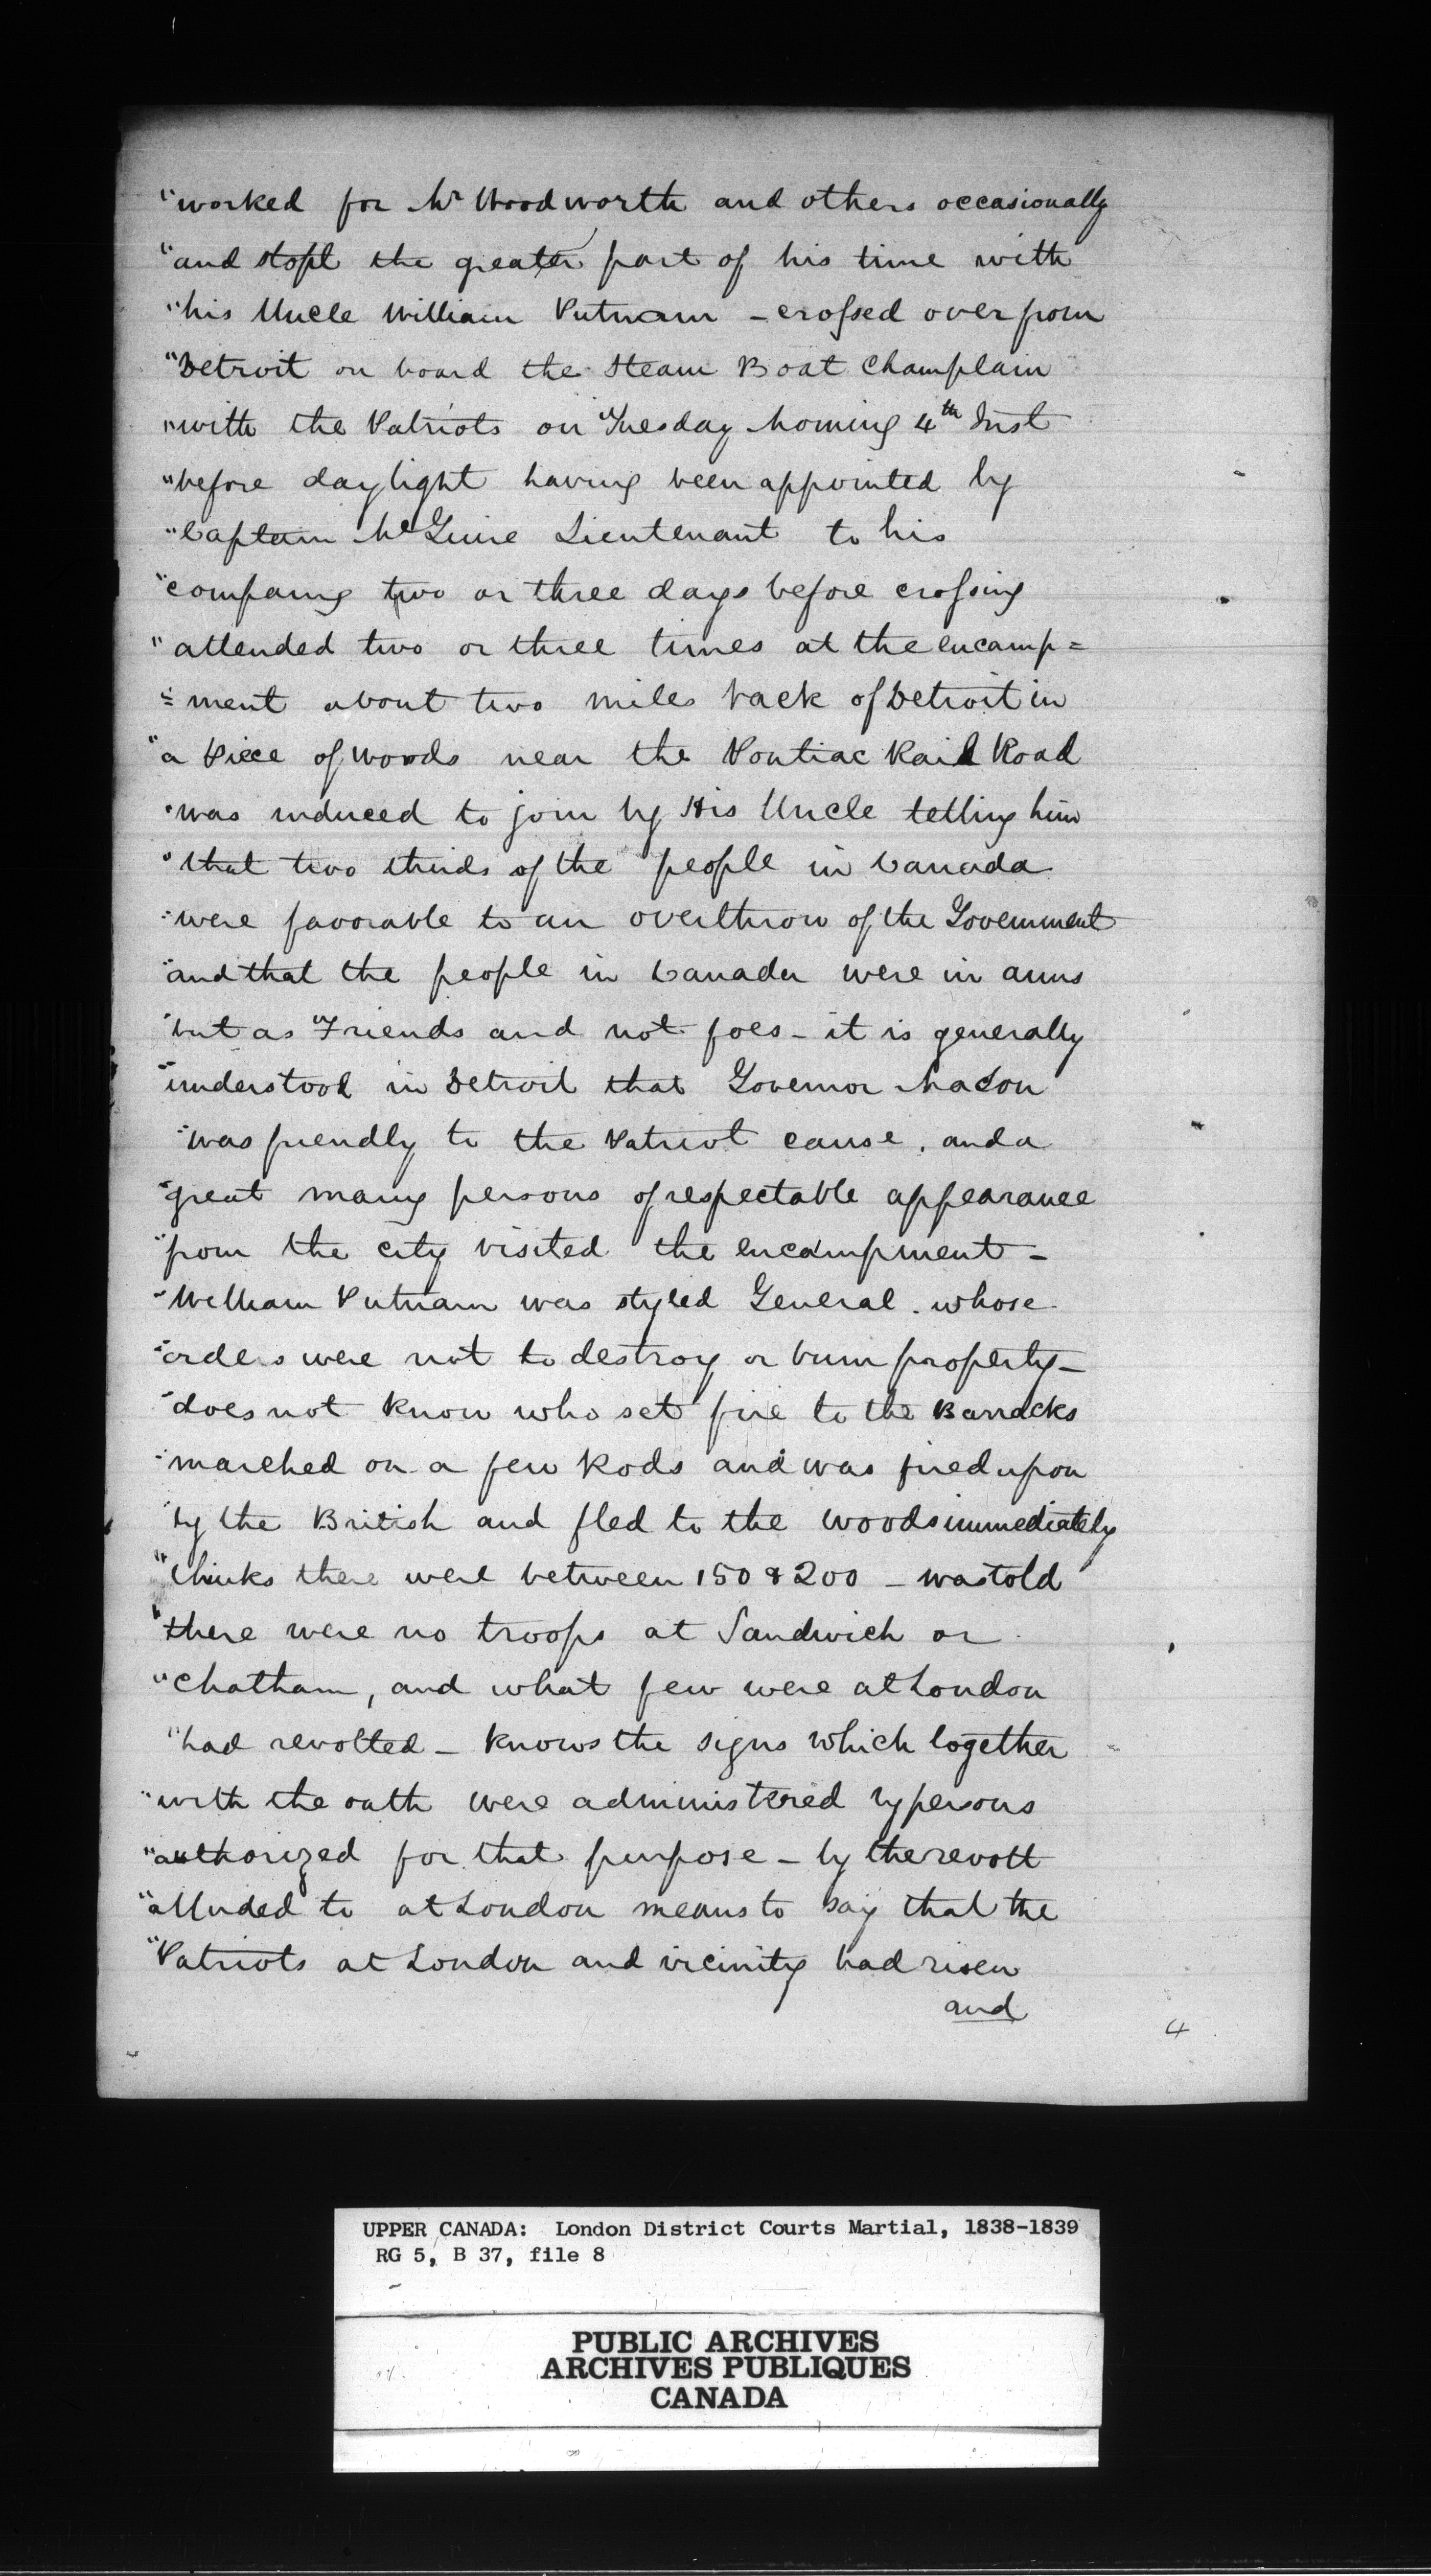 "worked for Mr Woodworth and others occasionally
"and stopt the greater part of his time with
"his Uncle William Putnam - crossed over from
"Detroit on board the Steam Boat Champlain
"with the Patriots on Tuesday Morning 4th Inst
"before daylight having been appointed by
"Captain McGuire Lieutenant to his
"company two or three days before crossing
"attended two or three times at the encamp=
"=ment about two miles back of Detroit in
"a Piece of Woods near the Pontiac Rail Road
"was induced to join by His Uncle telling him
"that two thirds of the people in Canada
"were favorable to an overthrow of the Government
"and that the people in Canada were in arms
"but as Friends and not foes - it is generally
"understood in Detroit that Governor Mason
"was friendly to the Patriot cause, and a
"great many persons of respectable appearance
"from the city visited the encampment -
"William Putnam was styled General . whose
"orders were not to destroy or burn property -
"does not know who set fire to the Barracks
"marched on a few Rods and was fired upon
"by the British and fled to the woods immediately
"thinks there were between 150 & 200 - was told
"there were no troops at Sandwich or
"Chatham, and what few were at London
"had revolted - knows the signs which together
"with the oath were administered by persons
"authorized for that purpose - by the revolt
"alluded to at London means to say that the
"Patriots at London and vicinity had risen
and
4
UPPER CANADA: London District Courts Martial, 1838-1839
RG 5, B 37, file 8
PUBLIC ARCHIVES
ARCHIVES PUBLIQUES
CANADA